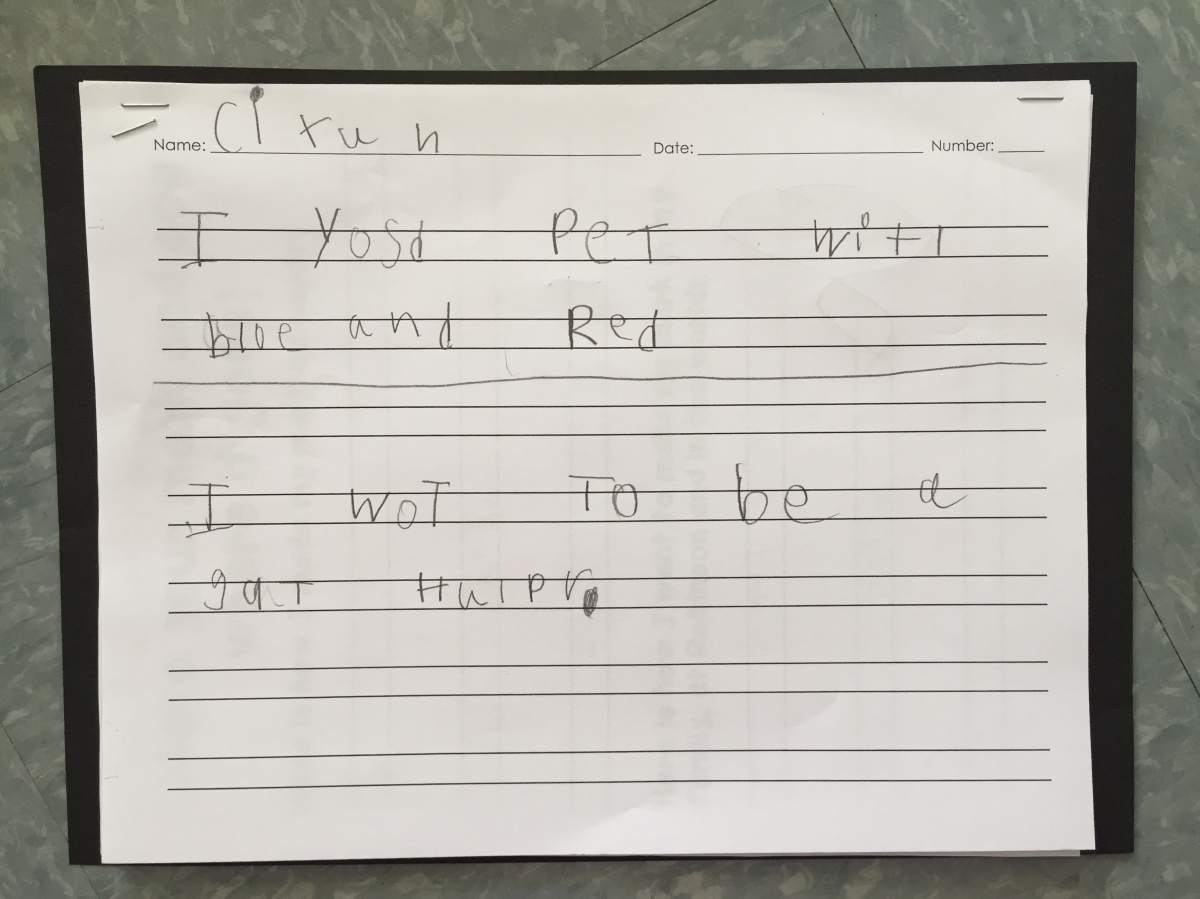 Name: Cixun Date: Number:
I Yosd PeT witl
bloe and Red
I woT To be a
gat Hulpr.